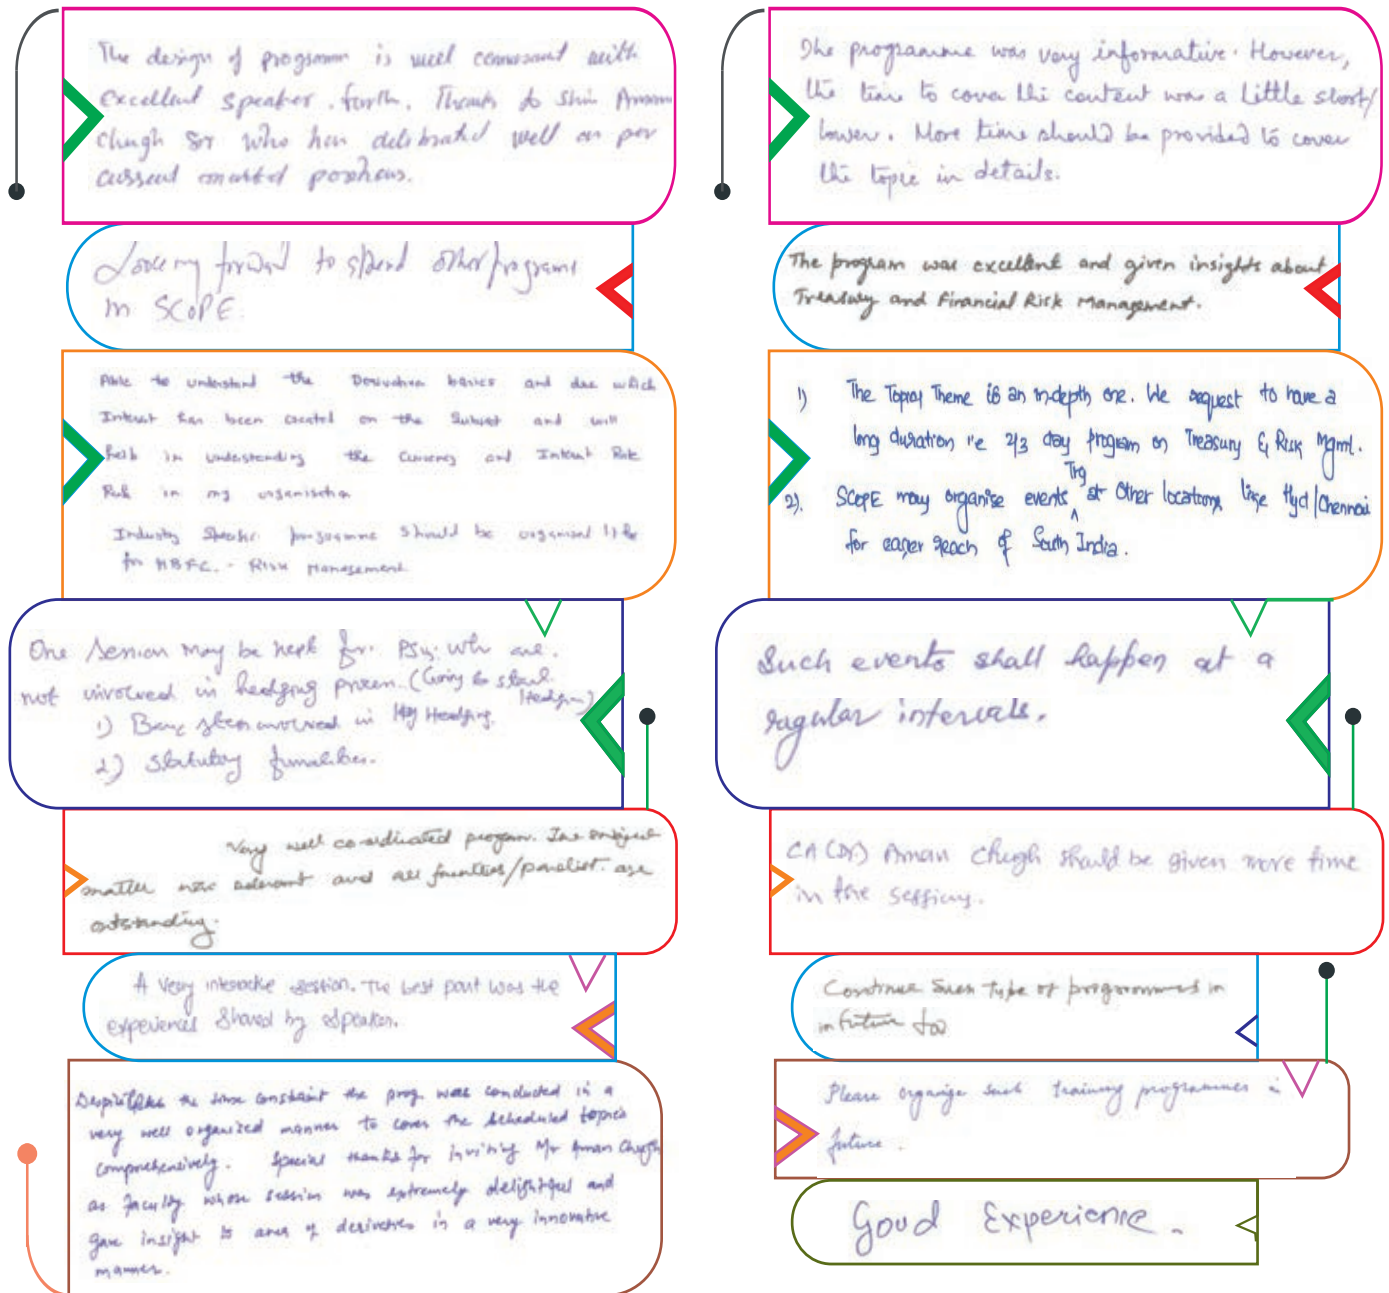 The design of programm is well conversant with
Excellent speaker. further. Thanks to Shri Aman
Chugh Sir who has deliberated well as per
current market positions.
Looking forward to attend other programs
in SCOPE.
Able to understand the Derivative basics and due which
Interest has been created on the Subject and will
help in understanding the Currency and Interest Rate
Risk in my organisation
Industry Specific programme should be organised like
for NBFC. - Risk Management
One Session may be kept for PSU. Who are.
not involved in hedging process. (Going to start Hedging)
1) Basic steps involved in Hedging.
2) Statutory formalities.
Very well co-ordinated program. The subject
matter was relevant and all faculties/panelist are
outstanding.
A Very interactive session. The best part was the
experiences shared by speaker.
Despite the time constraint the prog was conducted in a
very well organized manner to cover the scheduled topics
comprehensively. Special thanks for inviting Mr Aman Chugh
as faculty whose session was extremely delightful and
gave insight to area of derivatives in a very innovative
manner.
The programme was very informative. However,
the time to cover the content was a little short/
lower. More time should be provided to cover
the topic in details.
The program was excellent and given insights about
Treasury and Financial Risk Management.
1) The Topic/Theme is an in-depth one. We request to have a
long duration i.e 2/3 day program on Treasury & Risk Mgmt.
2). SCOPE may organise events Trg at Other locations like Hyd/Chennai
for easier reach of South India.
Such events shall happen at a
regular intervals.
CA (Dr) Aman Chugh should be given more time
in the sessions.
Continue Such type of programmes in
in future too
Please organize such training programmes in
future.
Good Experience.